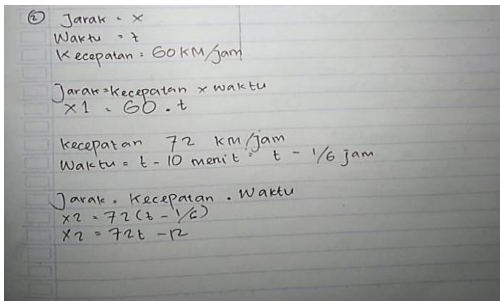 ② Jarak = x
Waktu = t
Kecepatan = 60 KM/jam
Jarak = Kecepatan x waktu
x1 = 60 . t
kecepatan 72 KM/jam
Waktu = t - 10 menit = t - 1/6 jam
Jarak = Kecepatan . Waktu
x2 = 72 (t - 1/6)
x2 = 72t - 12